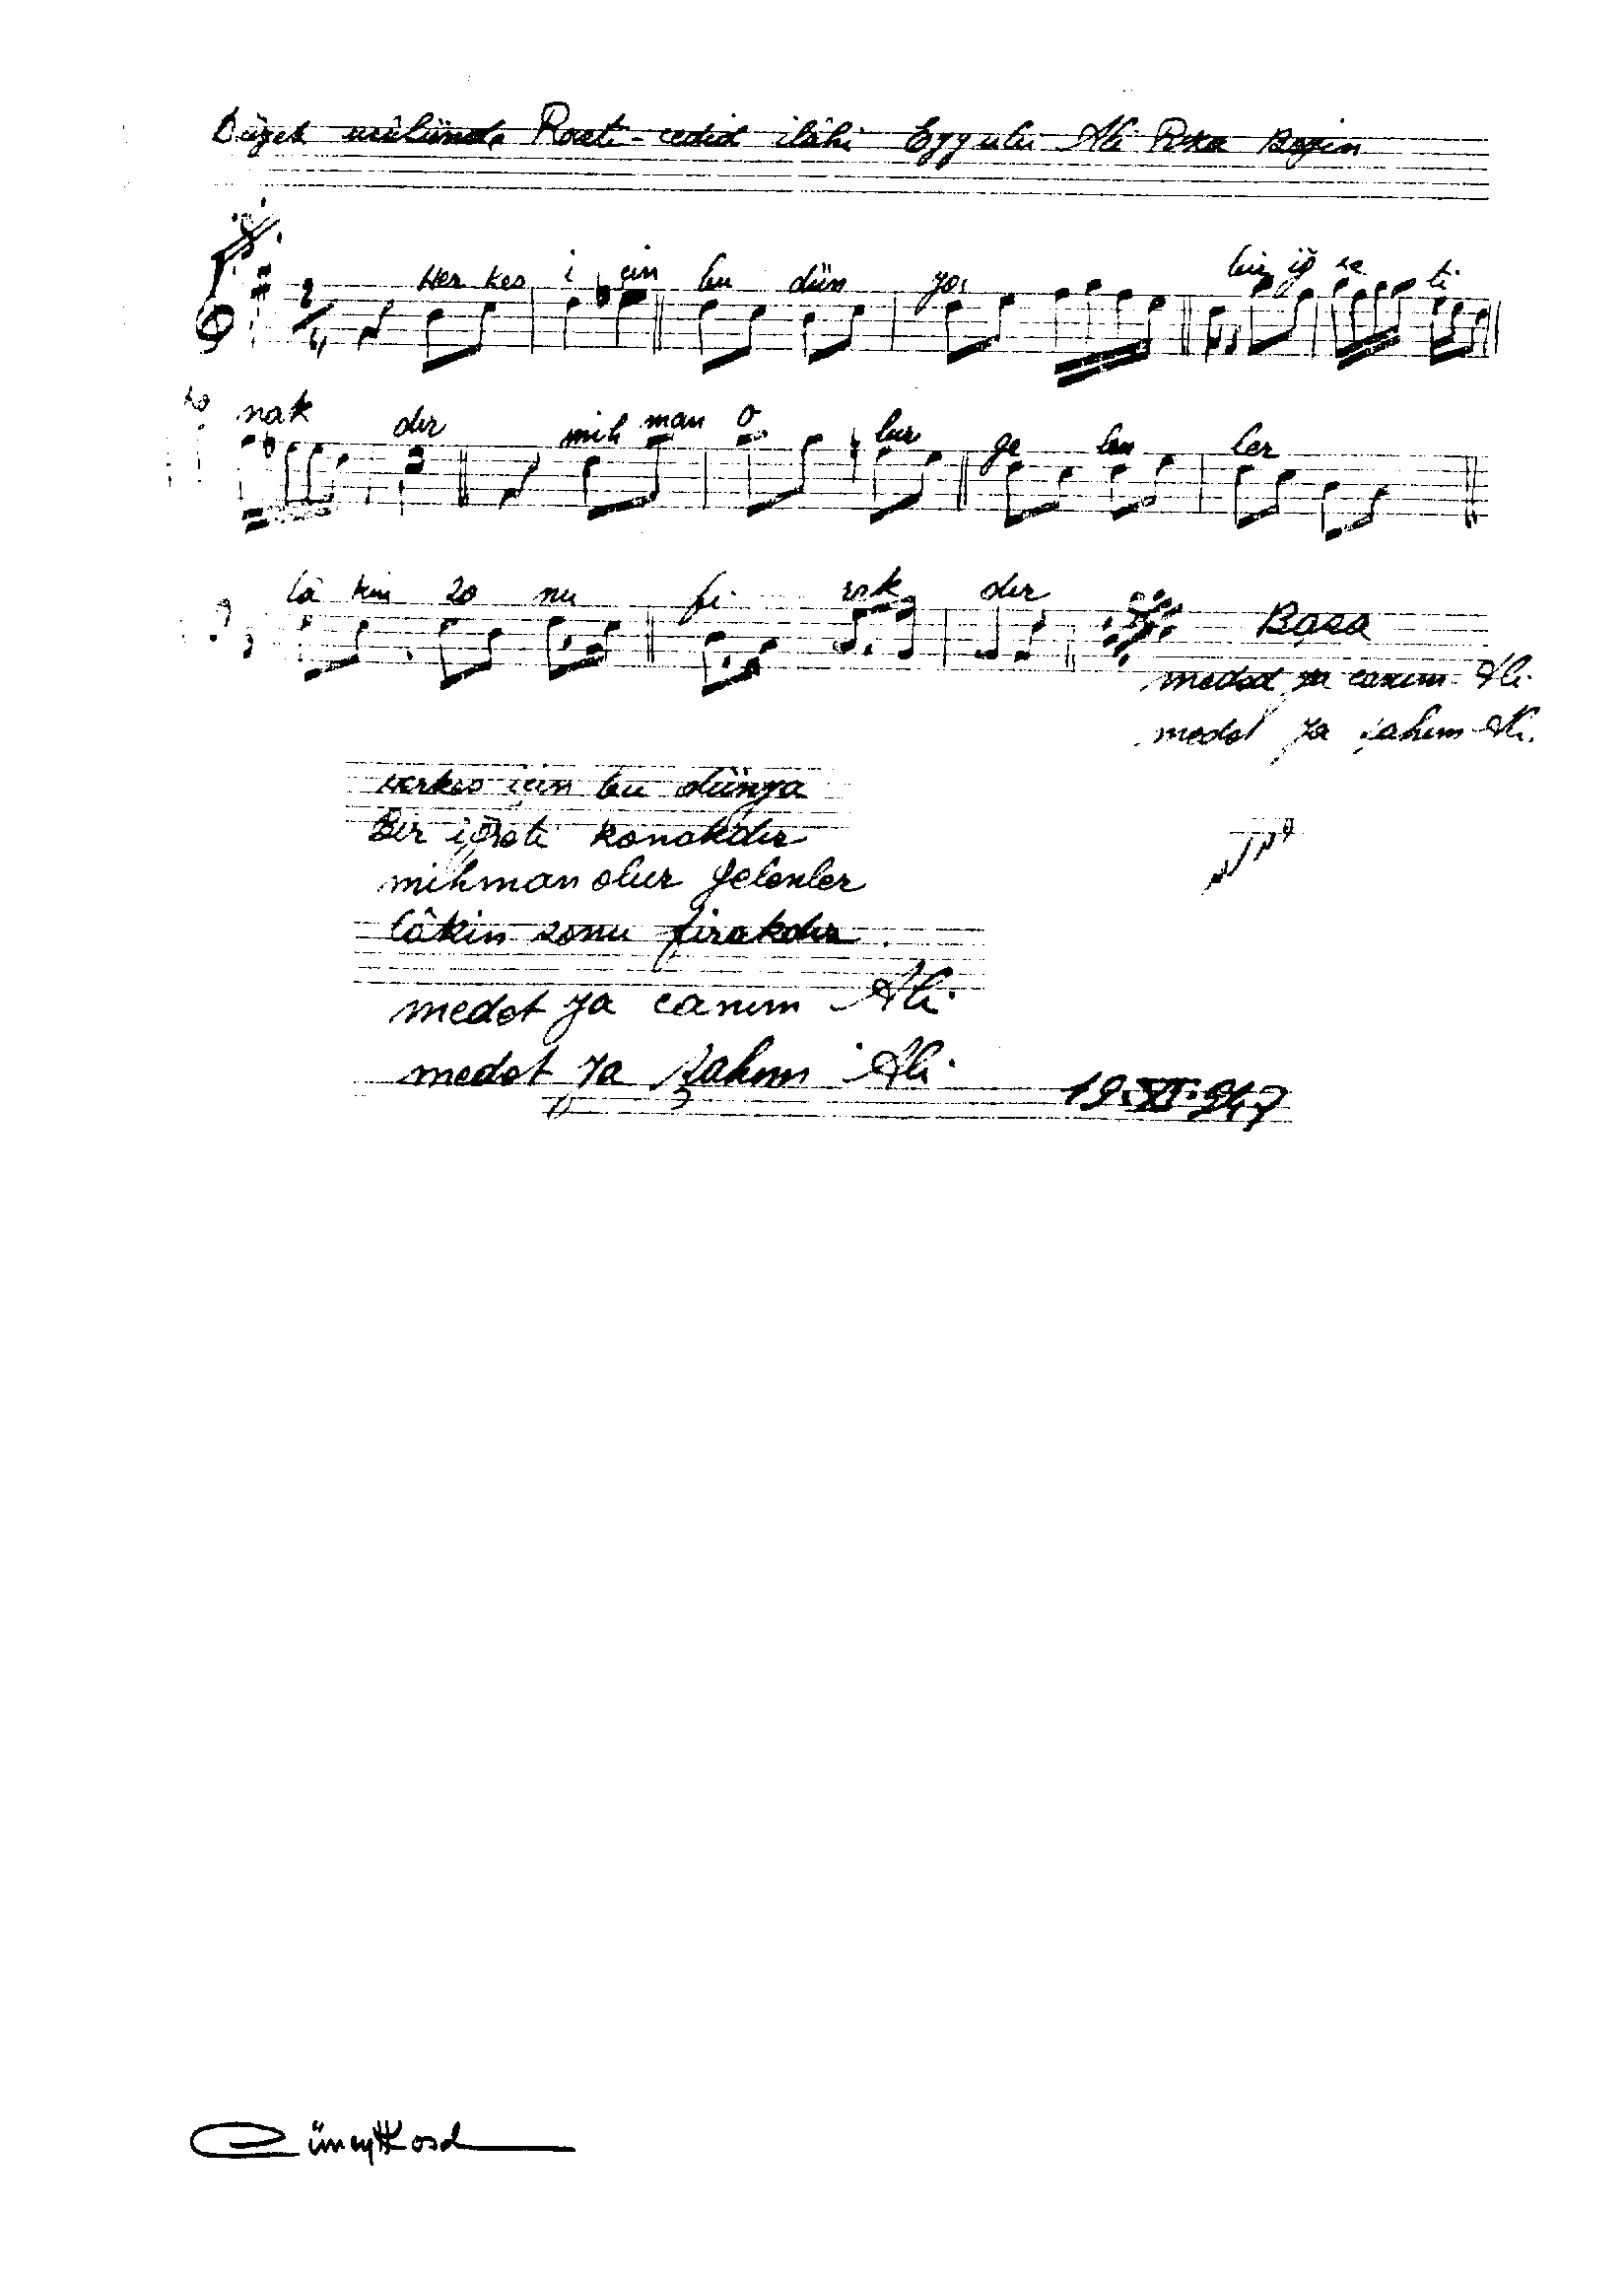 Düyek usûlünde Rast-cedid ilâhi Eyyubi Ali Rıza Beyin
2/4
Her kes i çin bu dün ya bir iğ re ti
ko nak dır mih man o lur ge len ler
lâ kin so nu fi rak dır Başa
medet ya canım Ali
medet ya şahım Ali.
Herkes için bu dünya
Bir iğreti konakdır
mihman olur gelenler
lâkin sonu firakdır.
medet ya canım Ali
medet ya şahım Ali
19.XI.947
Cüneyt Kosal